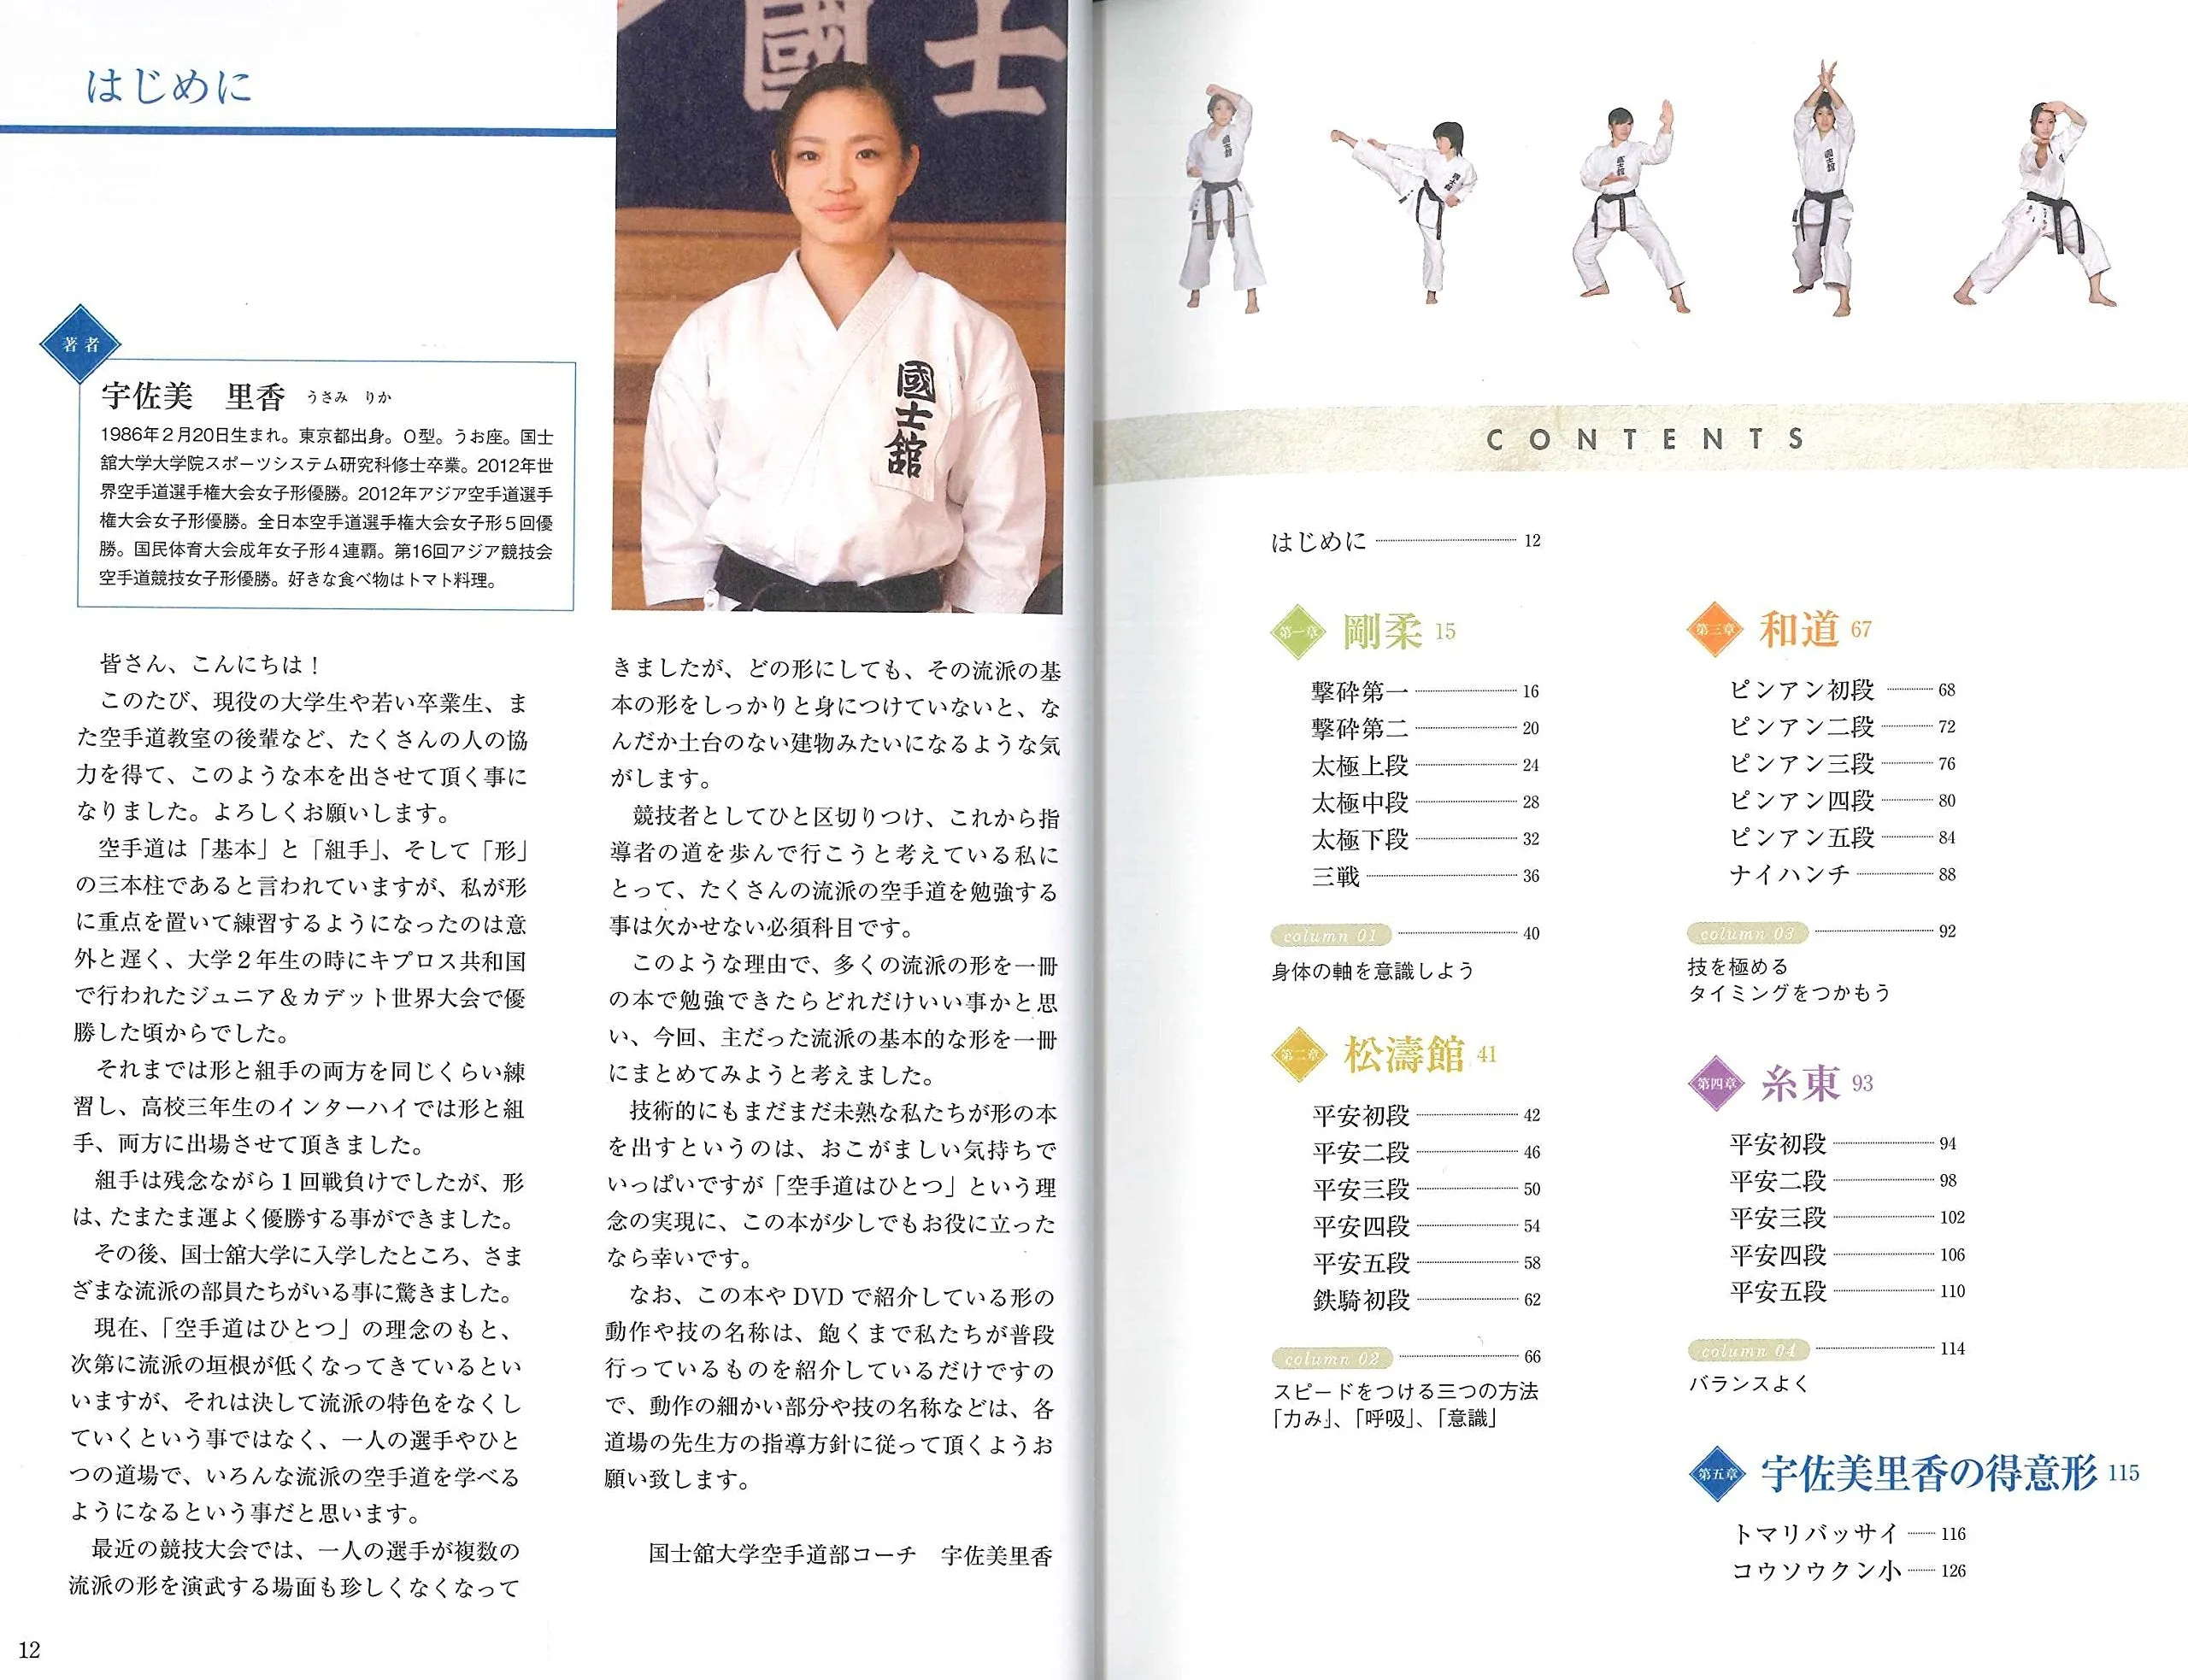 はじめに
國士
國士舘
著者
宇佐美　里香　うさみ　りか
1986年2月20日生まれ。東京都出身。O型。うお座。国士
舘大学大学院スポーツシステム研究科修士卒業。2012年世
界空手道選手権大会女子形優勝。2012年アジア空手道選手
権大会女子形優勝。全日本空手道選手権大会女子形5回優
勝。国民体育大会成年女子形4連覇。第16回アジア競技会
空手道競技女子形優勝。好きな食べ物はトマト料理。
皆さん、こんにちは！
このたび、現役の大学生や若い卒業生、ま
た空手道教室の後輩など、たくさんの人の協
力を得て、このような本を出させて頂く事に
なりました。よろしくお願いします。
空手道は「基本」と「組手」、そして「形」
の三本柱であると言われていますが、私が形
に重点を置いて練習するようになったのは意
外と遅く、大学２年生の時にキプロス共和国
で行われたジュニア＆カデット世界大会で優
勝した頃からでした。
それまでは形と組手の両方を同じくらい練
習し、高校三年生のインターハイでは形と組
手、両方に出場させて頂きました。
組手は残念ながら１回戦負けでしたが、形
は、たまたま運よく優勝する事ができました。
その後、国士舘大学に入学したところ、さま
ざまな流派の部員たちがいる事に驚きました。
現在、「空手道はひとつ」の理念のもと、
次第に流派の垣根が低くなってきているとい
いますが、それは決して流派の特色をなくし
ていくという事ではなく、一人の選手やひと
つの道場で、いろんな流派の空手道を学べる
ようになるという事だと思います。
最近の競技大会では、一人の選手が複数の
流派の形を演武する場面も珍しくなくなって
きましたが、どの形にしても、その流派の基
本の形をしっかりと身につけていないと、な
んだか土台のない建物みたいになるような気
がします。
競技者としてひと区切りつけ、これから指
導者の道を歩んで行こうと考えている私に
とって、たくさんの流派の空手道を勉強する
事は欠かせない必須科目です。
このような理由で、多くの流派の形を一冊
の本で勉強できたらどれだけいい事かと思
い、今回、主だった流派の基本的な形を一冊
にまとめてみようと考えました。
技術的にもまだまだ未熟な私たちが形の本
を出すというのは、おこがましい気持ちで
いっぱいですが「空手道はひとつ」という理
念の実現に、この本が少しでもお役に立った
なら幸いです。
なお、この本やDVDで紹介している形の
動作や技の名称は、飽くまで私たちが普段
行っているものを紹介しているだけですの
で、動作の細かい部分や技の名称などは、各
道場の先生方の指導方針に従って頂くようお
願い致します。
国士舘大学空手道部コーチ　宇佐美里香
12
CONTENTS
はじめに 12
第一章 剛柔 15
撃砕第一 16
撃砕第二 20
太極上段 24
太極中段 28
太極下段 32
三戦 36
column 01 40
身体の軸を意識しよう
第二章 松濤館 41
平安初段 42
平安二段 46
平安三段 50
平安四段 54
平安五段 58
鉄騎初段 62
column 02 66
スピードをつける三つの方法
「力み」、「呼吸」、「意識」
第三章 和道 67
ピンアン初段 68
ピンアン二段 72
ピンアン三段 76
ピンアン四段 80
ピンアン五段 84
ナイハンチ 88
column 03 92
技を極める
タイミングをつかもう
第四章 糸東 93
平安初段 94
平安二段 98
平安三段 102
平安四段 106
平安五段 110
column 04 114
バランスよく
第五章 宇佐美里香の得意形 115
トマリバッサイ 116
コウソウクン小 126